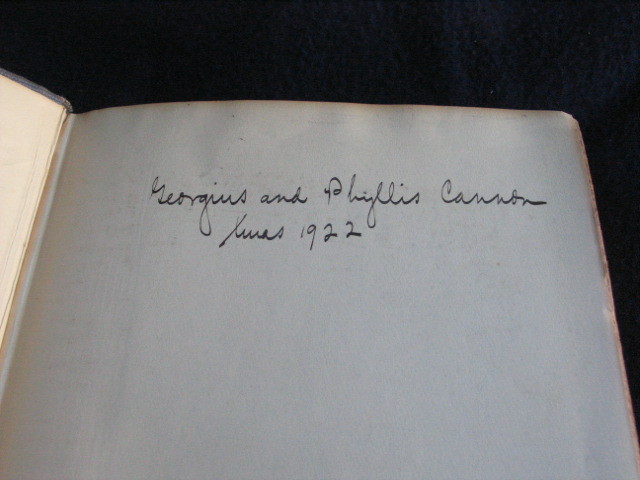 Georgius and Phyllis Cannon
Xmas 1922